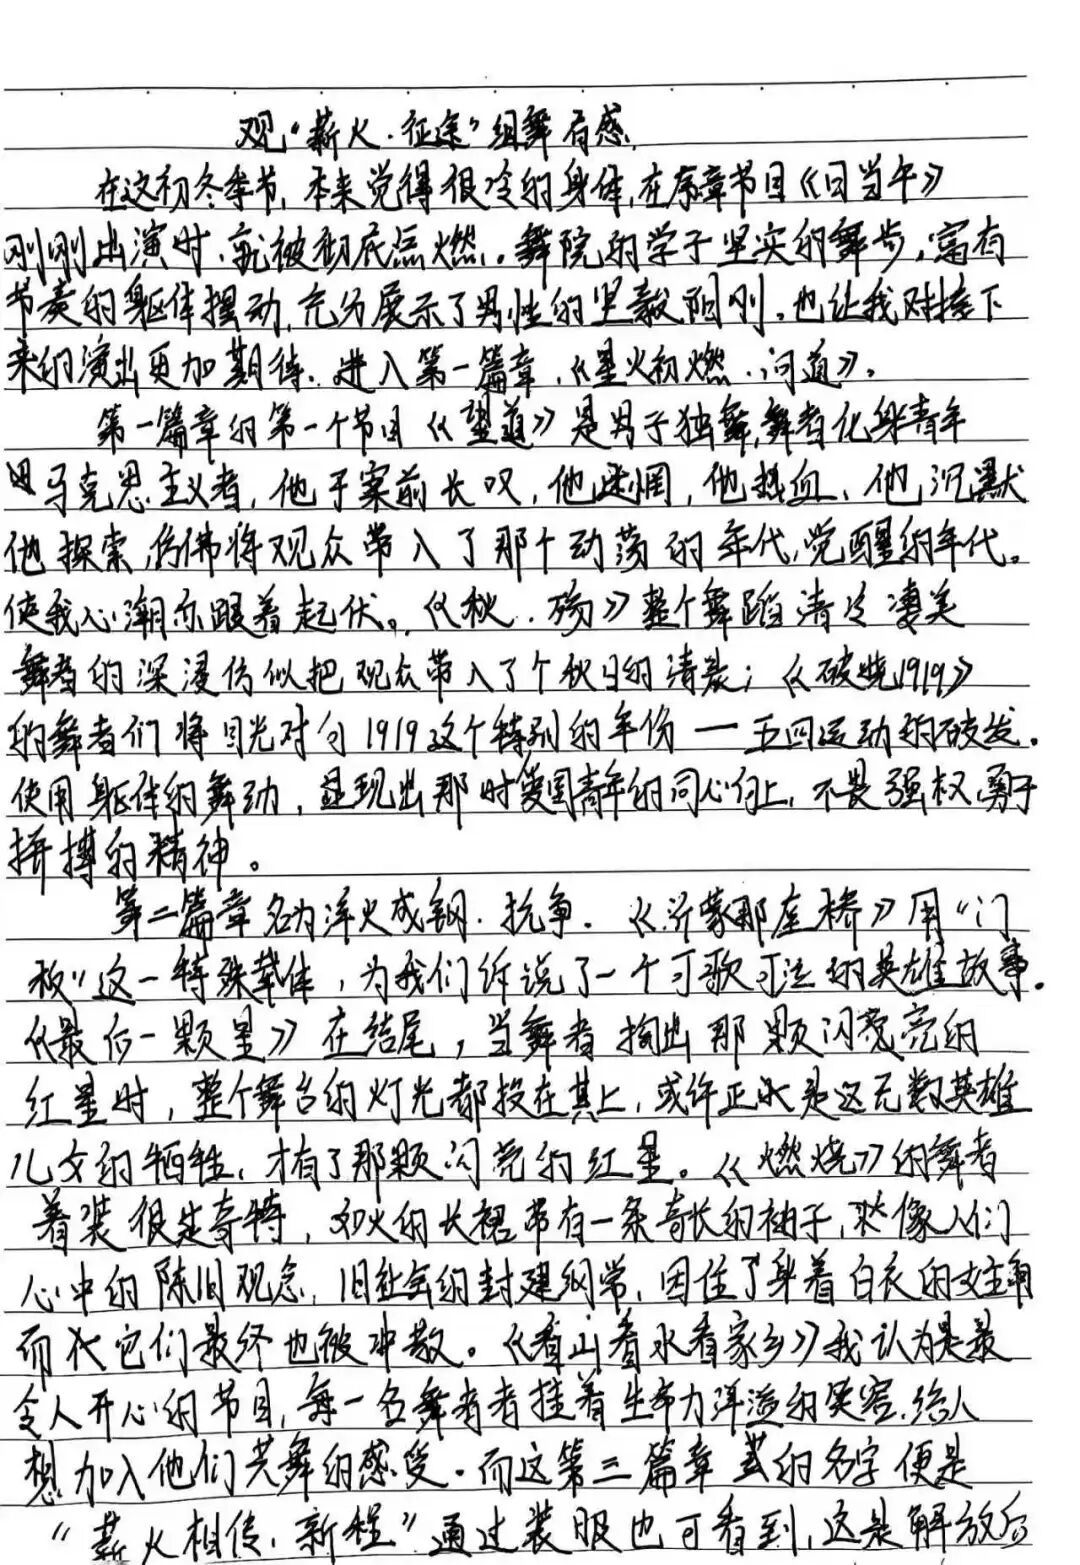 观“薪火·征途”组舞有感
在这初冬季节,本来觉得很冷的身体,在序章节目《日当午》
刚刚出演时,就被彻底点燃。舞院的学子坚实的舞步,富有
节奏的躯体摆动,充分展示了男性的坚毅阳刚。也让我对接下
来的演出更加期待。进入第一篇章,《星火初燃·问道》。
第一篇章的第一个节目《望道》是男子独舞,舞者化身青年
马克思主义者,他于案前长叹,他迷惘,他热血,他沉默
他探索,仿佛将观众带入了那个动荡的年代,觉醒的年代。
使我心潮亦跟着起伏。《秋·殇》整个舞蹈清冷凄美
舞者的深浸仿似把观众带入了个秋日的清衰;《破晓1919》
的舞者们将目光对向1919这个特别的年份—五四运动的破发。
使用躯体的舞动,显现出那时爱国青年的同心向上,不畏强权,勇于
拼搏的精神。
第二篇章名为淬火成钢·抗争.《沂蒙那座桥》用“门
板”这一特殊载体,为我们诉说了一个可歌可泣的英雄故事。
《最后一颗星》在结尾,当舞者掏出那颗闪亮亮的
红星时,整个舞台的灯光都投在其上,或许正是这无数英雄
儿女的牺牲,才有了那颗闪亮的红星。《燃烧》的舞者
着装很是奇特,如火的长裙带有一条奇长的袖子,就像人们
心中的陈旧观念,旧社会的封建纲常,困住了身着白衣的女主角
而它们最终也被冲散。《看山看水看家乡》我认为是最
令人开心的节目,每一名舞者者挂着生命力洋溢的笑容,给人
想加入他们共舞的感受。而这第三篇章的名字便是
“薪火相传,新程”通过装服也可看到,这是解放后